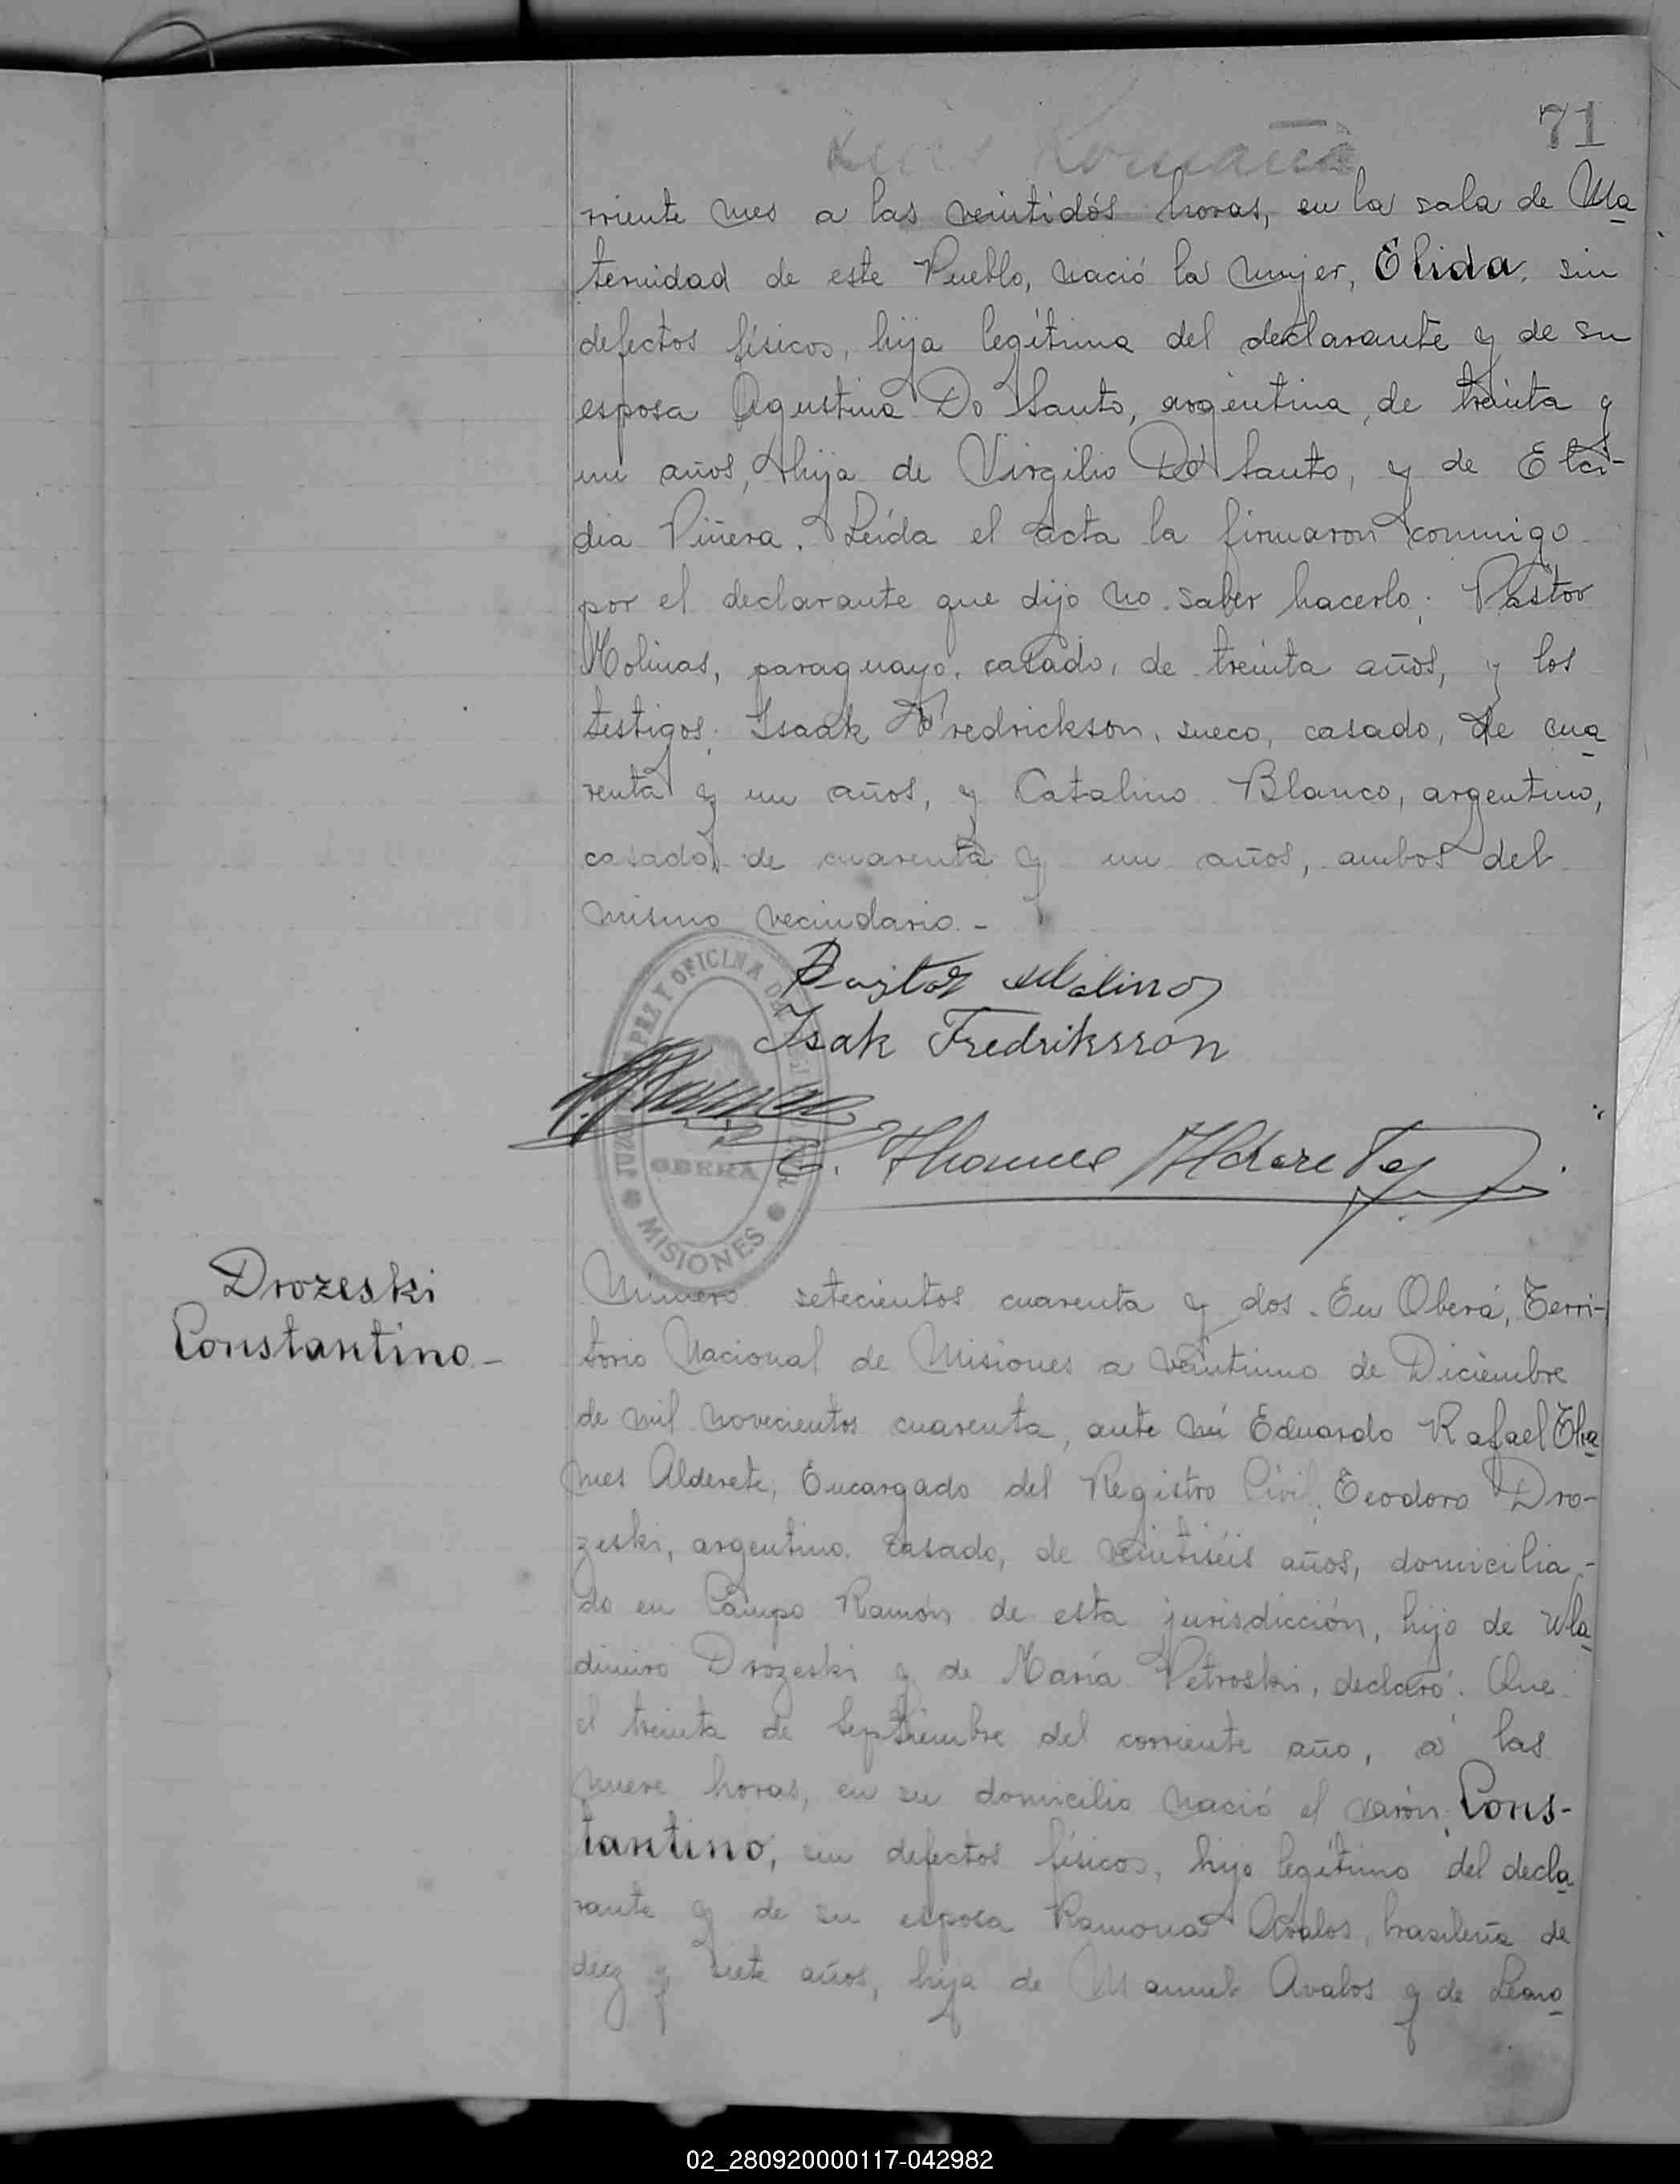 71
rriente mes a las veintidós horas, en la sala de Ma
ternidad de este Pueblo, nació la mujer, Elida, sin
defectos físicos, hija legítima del declarante y de su
esposa Agustina Do Santo, argentina, de treinta y
un años, hija de Virgilio Do Santo, y de Elci-
dia Piñera. Leída el acta la firmaron conmigo
por el declarante que dijo no saber hacerlo; Pastor
Molinas, paraguayo, casado, de treinta años, y los
testigos; Isaak Fredrickson, sueco, casado, de cua
renta y un años, y Catalino Blanco, argentino,
casado, de cuarenta y un años, ambos del
mismo vecindario.-
Pastor Molinas
Isak Fredriksson
E. Thames Alderete
JUZGADO DE PAZ Y OFICINA DEL
OBERA
MISIONES
Drozeski
Constantino.-
Número setecientos cuarenta y dos. En Oberá, Terri-
torio Nacional de Misiones a veintiuno de Diciembre
de mil novecientos cuarenta, ante mí Eduardo Rafael Tha
mes Alderete, Encargado del Registro Civil, Teodoro Dro-
zeski, argentino, casado, de veintiséis años, domicilia-
do en Campo Ramón de esta jurisdicción, hijo de Wla
dimiro Drozeski y de María Petroski, declaró: Que
el treinta de Septiembre del corriente año, a las
nueve horas, en su domicilio nació el varón, Cons-
tantino, sin defectos físicos, hijo legítimo del decla
rante y de su esposa Ramona Avalos, brasileña de
diez y siete años, hija de Manuel Avalos y de Leano
02_280920000117-042982